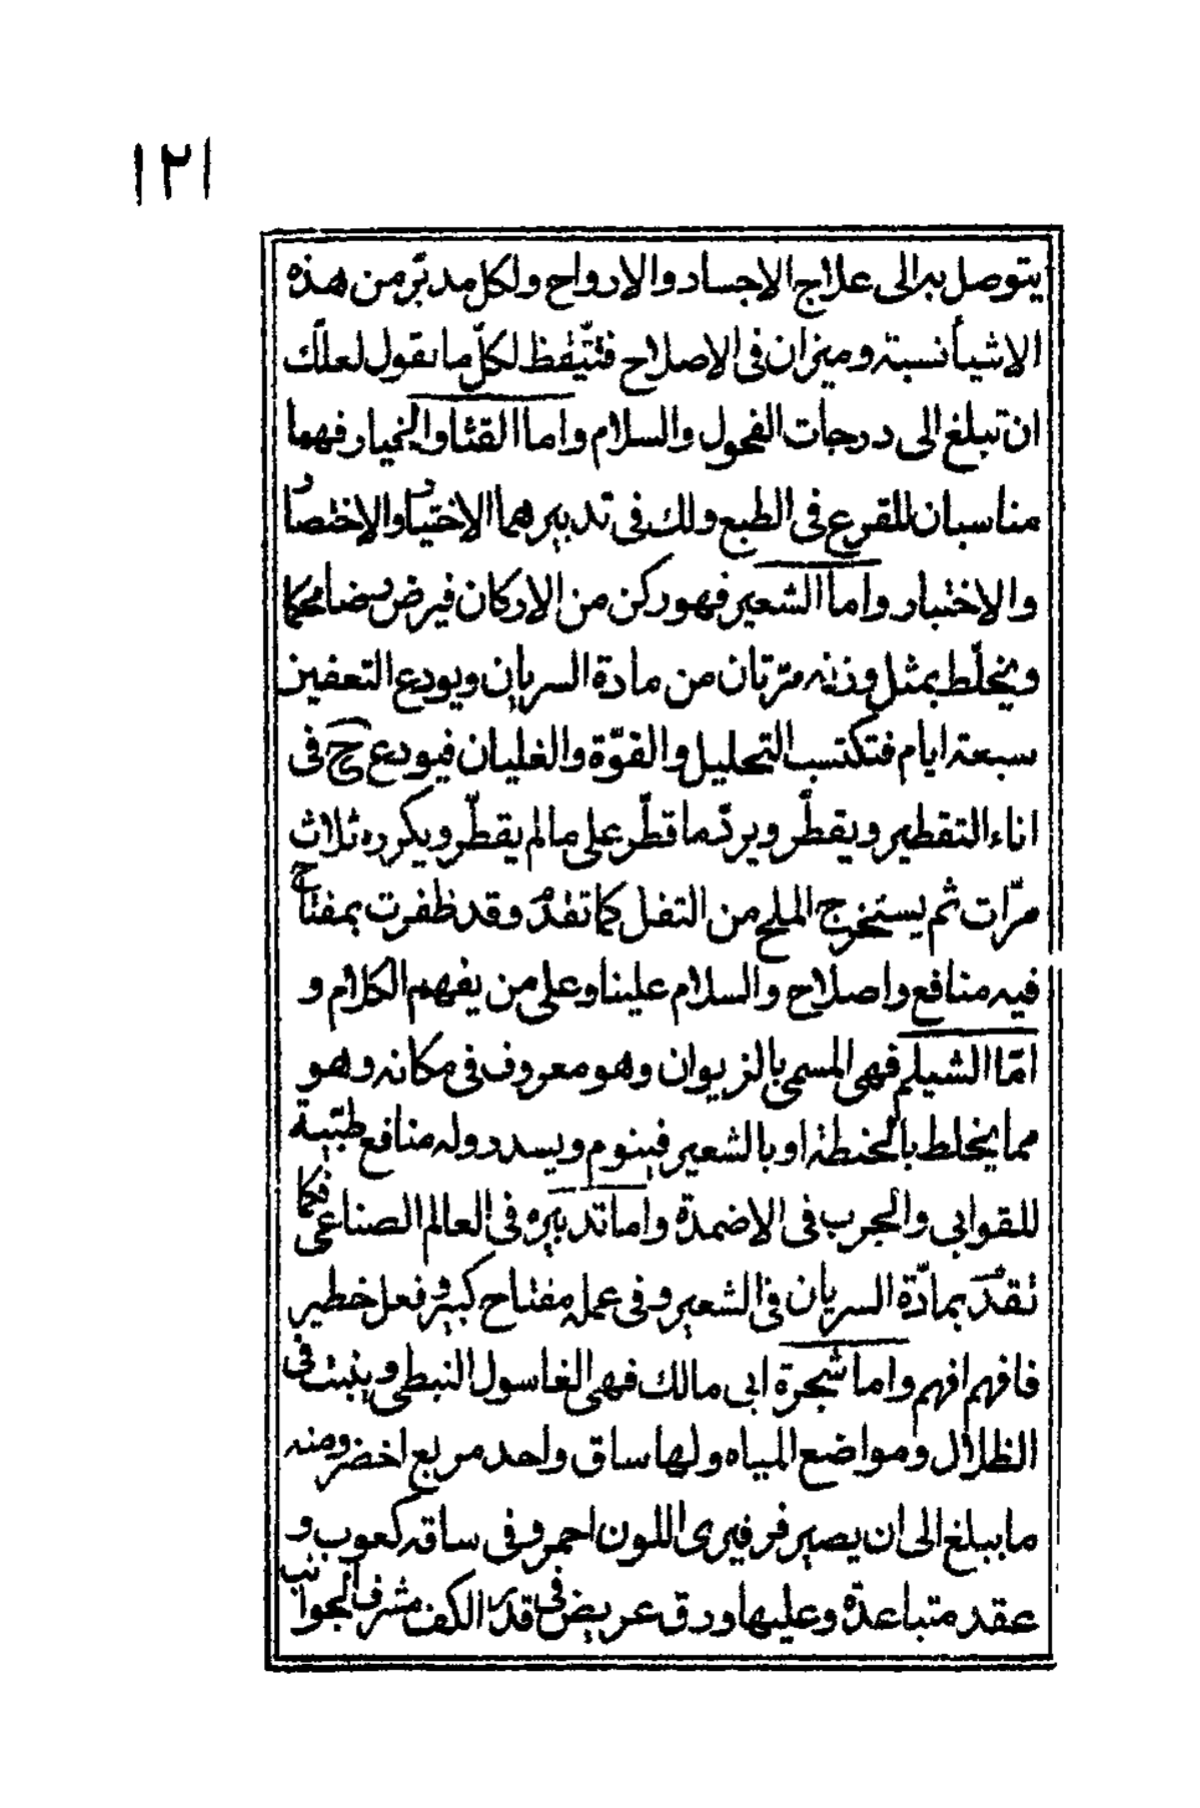 ١٢١
يتوصل به الى علاج الاجساد والارواح ولكل مدبّر من هذه
الاشيأ نسبته وميزان فى الاصلاح فتيّقظ لكلّ ما نقول لعلّك
ان تبلغ الى درجات الفحول والسلام واما القثا والخيار فهما
مناسبان للقرع فى الطبع ولك فى تدبيرهما الاختيار والاختصار
والاختبار واما الشعير فهو ركن من الاركان فيرض رضا محكما
ويخلّط بمثل وزنه مرّتان من مادة السريان ويودع التعفين
سبعة ايام فتكتسب التحليل والقوّة والغليان فيودع ح فى
اناء التقطير ويقطّر ويردّ ما قطّر على ما لم يقطّر ويكرره ثلاث
مرّات ثم يستخرج الملح من التفل كما تقدّم وقد ظفرت بمفتاح
فيه منافع واصلاح والسلام علينا وعلى من يفهم الكلام و
امّا الشيلم فهى المسمى بالزيوان وهو معروف فى مكانه وهو
مما يخلط بالحنطة او بالشعير فينوم ويسدر وله منافع طبّية
للقوابى والجرب فى الاضمدة واما تدبيره فى العالم الصناعى فكما
تقدّم بمادّة السريان فى الشعير وفى عمله مفتاح كبير وفعل خطير
فافهم افهم واما شجرة ابى مالك فهى الغاسول النبطى وينبت فى
الظلال ومواضع المياه ولها ساق واحد مربع اخضر ومنه
ما يبلغ الى ان يصير فرفيرى اللون احمر وفى ساقه كعوب و
عقد متباعدة وعليها ورق عريض فى قدر الكف مشرف الجوانب